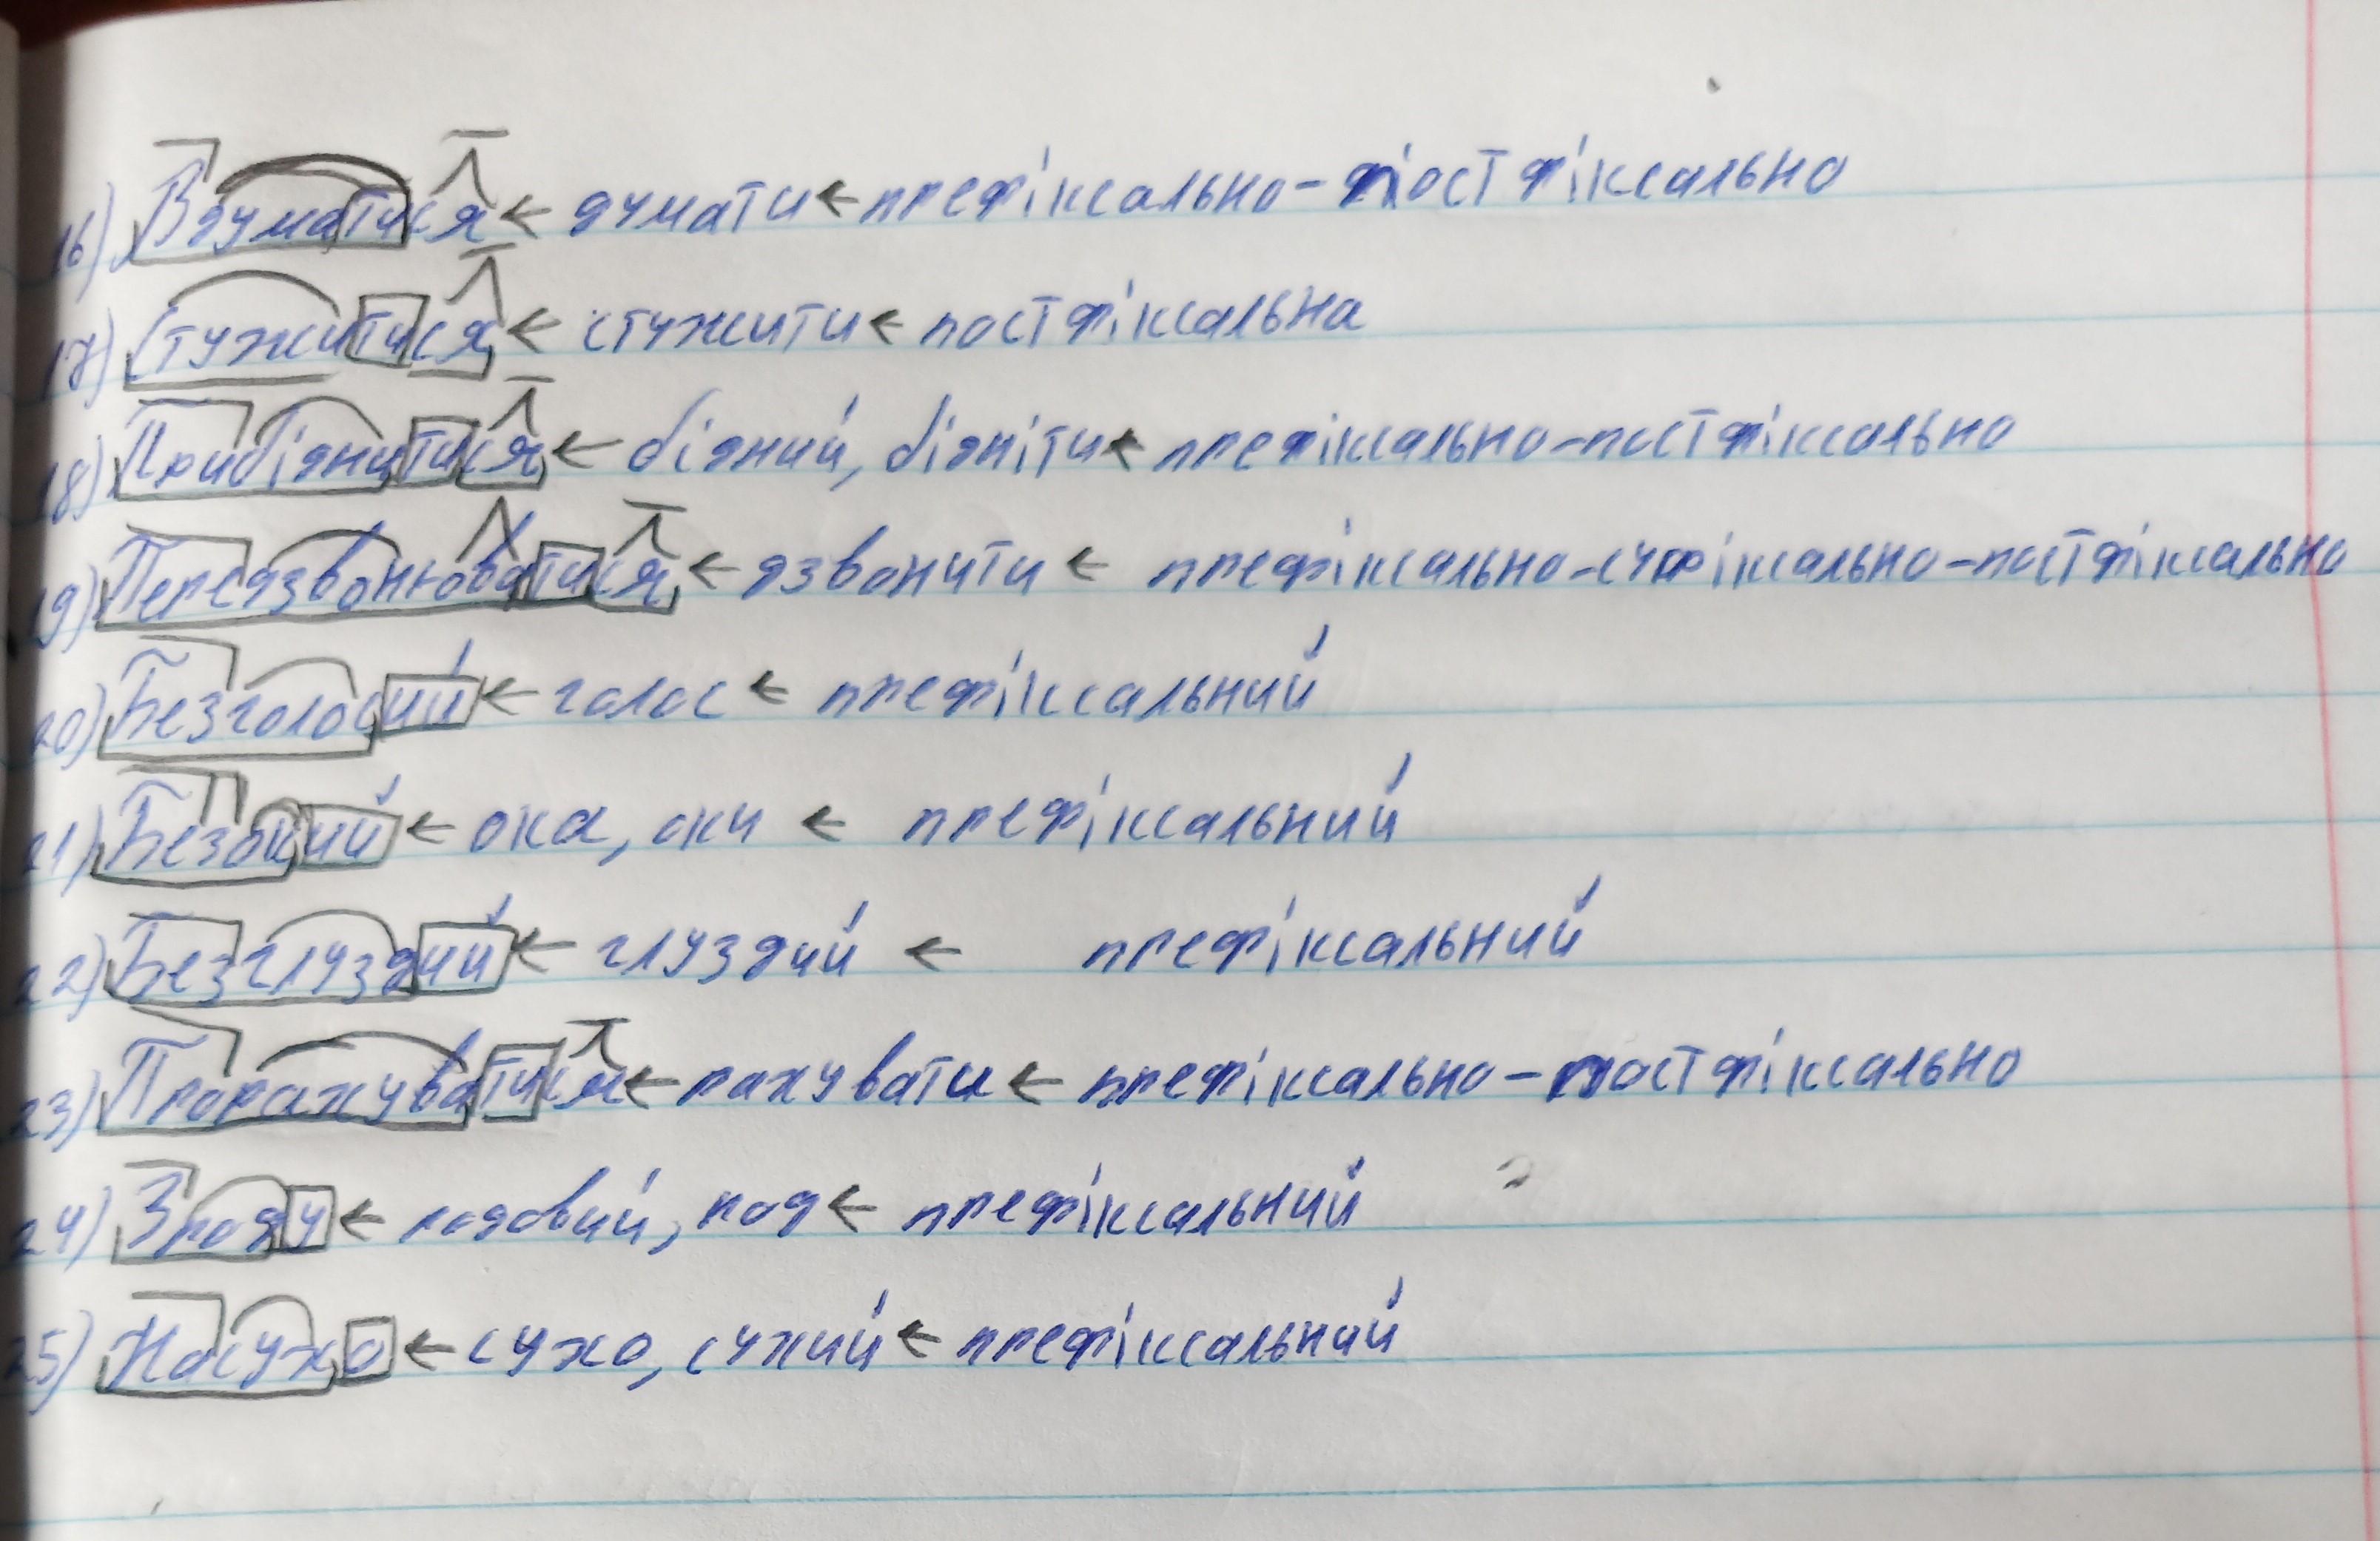 16) Вдуматися ← думати ← префіксально-постфіксально
17) Стужитися ← стужити ← постфіксальна
18) Прибіднитися ← бідний, бідніти ← префіксально-постфіксально
19) Передзвонюватися ← дзвонити ← префіксально-суфіксально-постфіксально
20) Безголосий ← голос ← префіксальний
21) Безокий ← ока, оки ← префіксальний
22) Безглуздий ← глуздий ← префіксальний
23) Прорахуватися ← рахувати ← префіксально-постфіксально
24) Зроду ← родовий, род ← префіксальний
25) Насухо ← сухо, сухий ← префіксальний